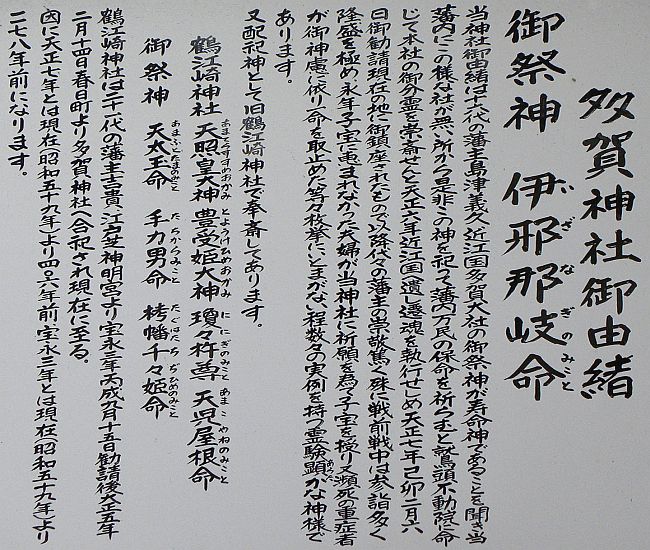 多賀神社御由緒
御祭神　伊邪那岐命
いざなぎのみこと
当神社御由緒は十六代の藩主島津義久近江国多賀大社の御祭神が寿命神であることを聞き当
藩内にこの様な社が無い所から是非この神を祀って藩内万民の保命を祈らむと鷲頭不動院に命
じて本社の御分霊を崇斎せんと天正六年近江国へ遣し遷魂を執行せしめ天正七年己卯二月六
日御勧請現在の地に御鎮座されたもので以降代々の藩主の崇敬篤く殊に戦前戦中は参詣多く
隆盛を極め永年子宝に恵まれなかった夫婦が当神社に祈願を為し子宝を授り又瀕死の重症者
が御神慮に依り一命を取止めた等々枚挙にいとまがない程数々の実例を持つ霊験顕かな神様で
あらた
あります。
又配祀神として旧鶴江崎神社で奉斎してあります。
鶴江崎神社　天照皇大神　豊受姫大神　瓊々杵尊　天児屋根命
あまてらすすめおおかみ　とようけひめおおかみ　ににぎのみこと　あまこやねのみこと
御祭神　天太玉命　手力男命　栲幡千々姫命
あまふとたまのみこと　たぢからみこと　たぐはたちぢひめのみこと
鶴江崎神社は二十一代の藩主吉貴江戸芝神明宮より宝永三年丙戌八月十五日勧請後大正五年
二月十四日春日町より多賀神社へ合祀され現在に至る。
因に天正七年とは現在(昭和五十九年)より四〇六年前宝永三年とは現在(昭和五十九年)より
二七八年前になります。